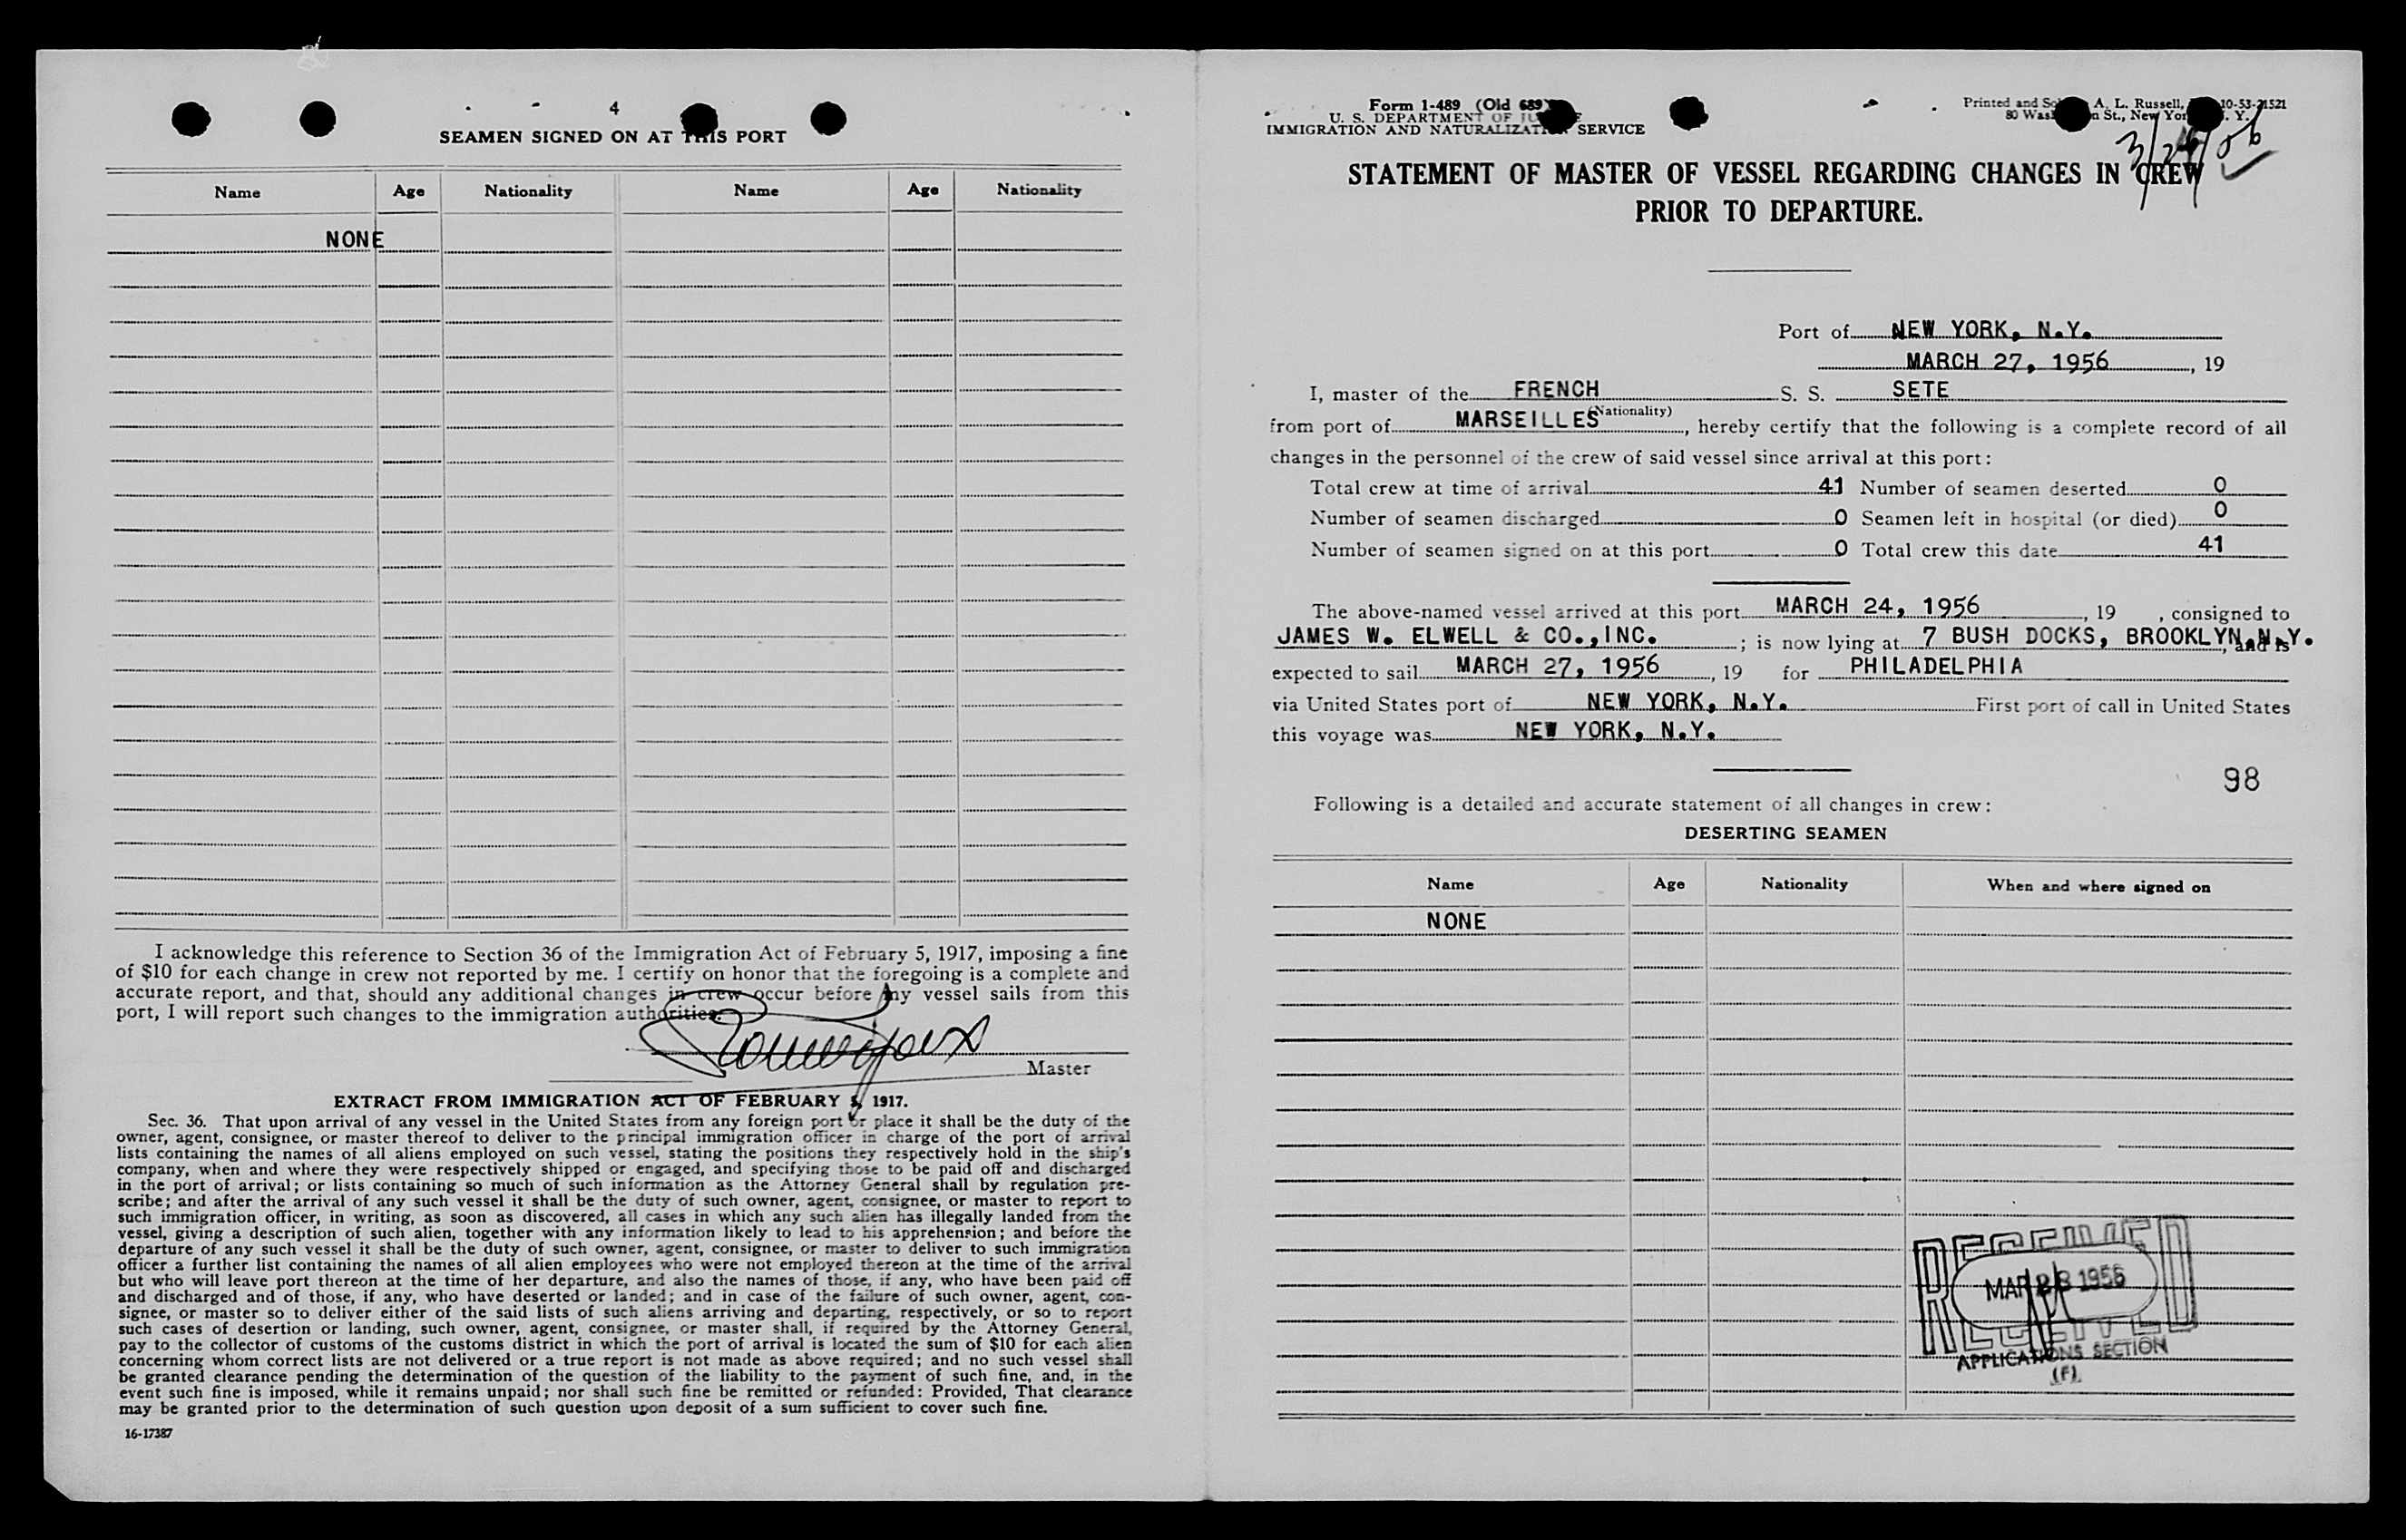 4
SEAMEN SIGNED ON AT THIS PORT
Name Age Nationality Name Age Nationality
NONE
I acknowledge this reference to Section 36 of the Immigration Act of February 5, 1917, imposing a fine
of $10 for each change in crew not reported by me. I certify on honor that the foregoing is a complete and
accurate report, and that, should any additional changes in crew occur before my vessel sails from this
port, I will report such changes to the immigration authorities.
Master
EXTRACT FROM IMMIGRATION ACT OF FEBRUARY 5, 1917.
Sec. 36. That upon arrival of any vessel in the United States from any foreign port or place it shall be the duty of the
owner, agent, consignee, or master thereof to deliver to the principal immigration officer in charge of the port of arrival
lists containing the names of all aliens employed on such vessel, stating the positions they respectively hold in the ship's
company, when and where they were respectively shipped or engaged, and specifying those to be paid off and discharged
in the port of arrival; or lists containing so much of such information as the Attorney General shall by regulation pre-
scribe; and after the arrival of any such vessel it shall be the duty of such owner, agent, consignee, or master to report to
such immigration officer, in writing, as soon as discovered, all cases in which any such alien has illegally landed from the
vessel, giving a description of such alien, together with any information likely to lead to his apprehension; and before the
departure of any such vessel it shall be the duty of such owner, agent, consignee, or master to deliver to such immigration
officer a further list containing the names of all alien employees who were not employed thereon at the time of the arrival
but who will leave port thereon at the time of her departure, and also the names of those, if any, who have been paid off
and discharged and of those, if any, who have deserted or landed; and in case of the failure of such owner, agent, con-
signee, or master so to deliver either of the said lists of such aliens arriving and departing, respectively, or so to report
such cases of desertion or landing, such owner, agent, consignee, or master shall, if required by the Attorney General,
pay to the collector of customs of the customs district in which the port of arrival is located the sum of $10 for each alien
concerning whom correct lists are not delivered or a true report is not made as above required; and no such vessel shall
be granted clearance pending the determination of the question of the liability to the payment of such fine, and, in the
event such fine is imposed, while it remains unpaid; nor shall such fine be remitted or refunded: Provided, That clearance
may be granted prior to the determination of such question upon deposit of a sum sufficient to cover such fine.
16-17387
Form 1-489 (Old 689)
U. S. DEPARTMENT OF
IMMIGRATION AND NATURALIZATION SERVICE
Printed and A. L. Russell, 10-53-21521
80 St., New York N. Y.
STATEMENT OF MASTER OF VESSEL REGARDING CHANGES IN CREW
PRIOR TO DEPARTURE.
Port of NEW YORK, N.Y.
MARCH 27, 1956, 19
I, master of the FRENCH S. S. SETE
(Nationality)
from port of MARSEILLES, hereby certify that the following is a complete record of all
changes in the personnel of the crew of said vessel since arrival at this port:
Total crew at time of arrival 41 Number of seamen deserted 0
Number of seamen discharged 0 Seamen left in hospital (or died) 0
Number of seamen signed on at this port 0 Total crew this date 41
The above-named vessel arrived at this port MARCH 24, 1956, 19 , consigned to
JAMES W. ELWELL & CO.,INC. ; is now lying at 7 BUSH DOCKS, BROOKLYN,N.Y. , and is
expected to sail MARCH 27, 1956, 19 for PHILADELPHIA
via United States port of NEW YORK, N.Y. First port of call in United States
this voyage was NEW YORK, N.Y.
98
Following is a detailed and accurate statement of all changes in crew:
DESERTING SEAMEN
Name Age Nationality When and where signed on
NONE
RECEIVED
MAR 28 1956
RECEIVED
APPLICATIONS SECTION
(F)